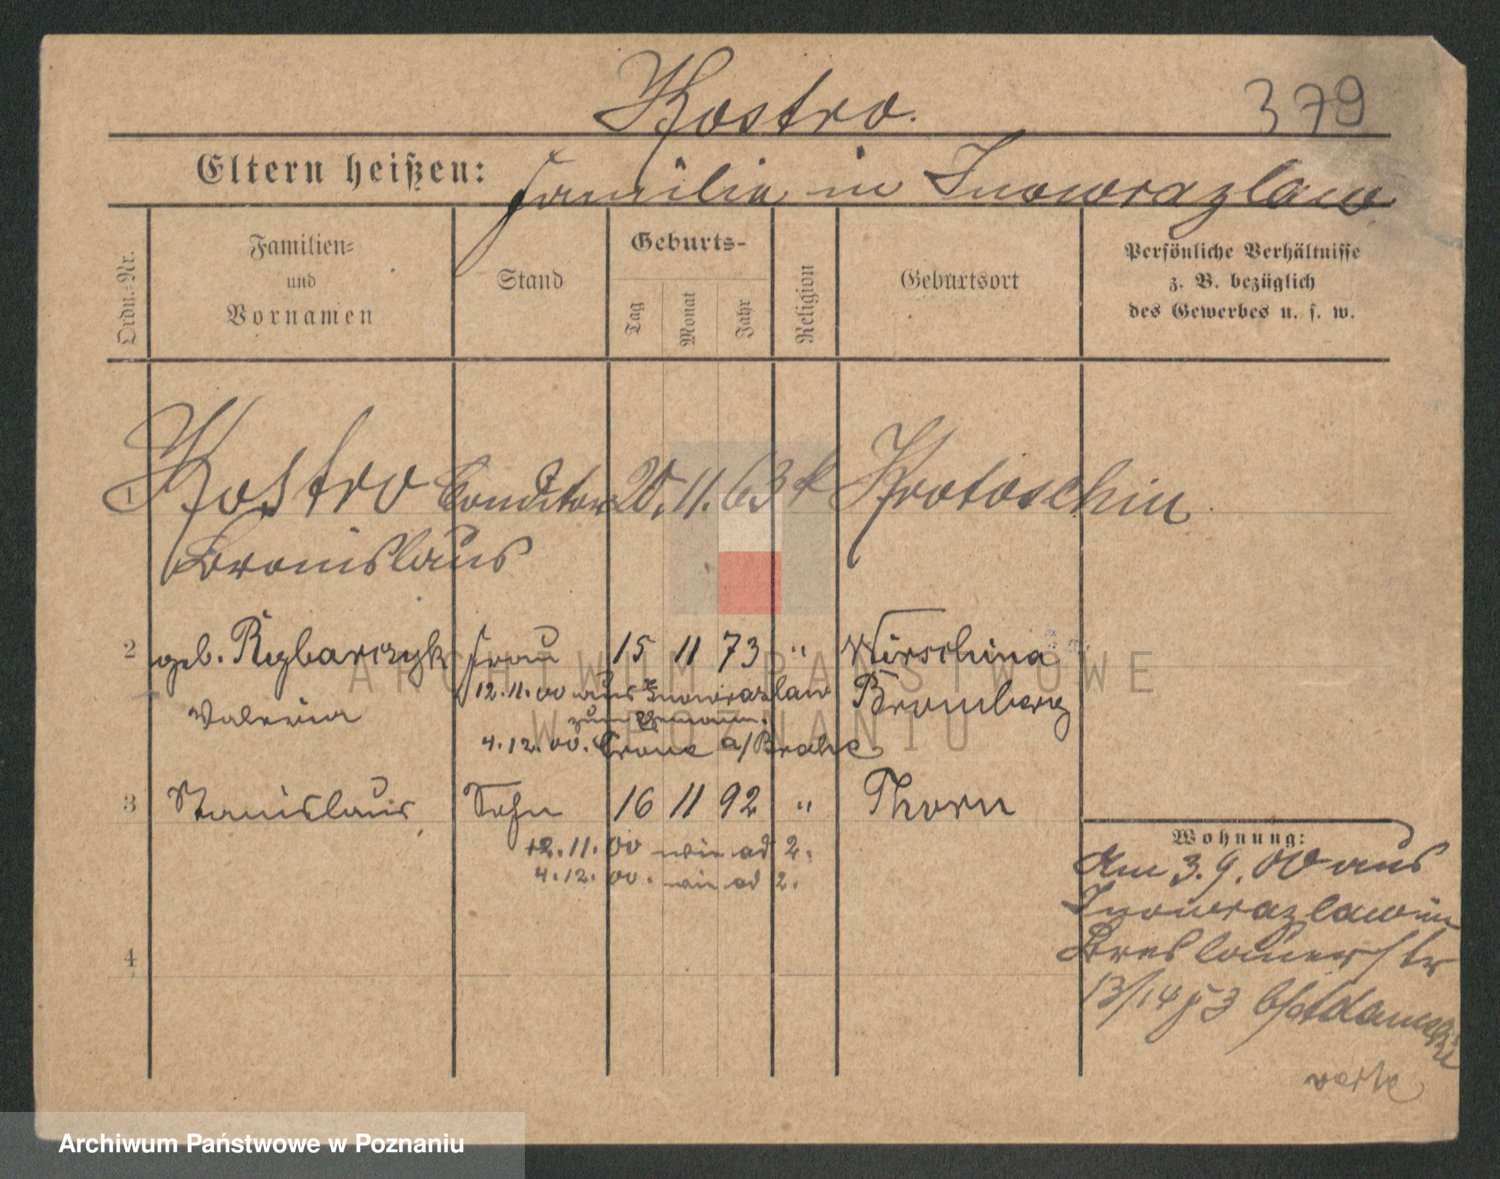 Kostro.
379
Eltern heißen:
Familie in Inowrazlaw
Ordn.-Nr.
Familien-
und
Vornamen
Stand
Geburts-
Tag
Monat
Jahr
Religion
Geburtsort
Persönliche Verhältnisse
z. B. bezüglich
des Gewerbes u. s. w.
1 Kostro Conditor 20. 11. 63 k Krotoschin
Bronislaus
2 geb. Rezbarczyk Frau 15 11 73 " Wirschina
12.11.00 aus Inowrazlaw Bromberg
Valeria
zum Ehemann.
4.12.00. Crone a/Brahe
3 Stanislaus, Sohn 16 11 92 " Thorn
12.11.00 wie ad 2.
4.12.00. wie ad 2.
4
Wohnung:
Am 3.9.00 aus
Inowrazlaw in
Breslauerstr
13/14 b/
ARCHIWUM PAŃSTWOWE
W POZNANIU
Archiwum Państwowe w Poznaniu